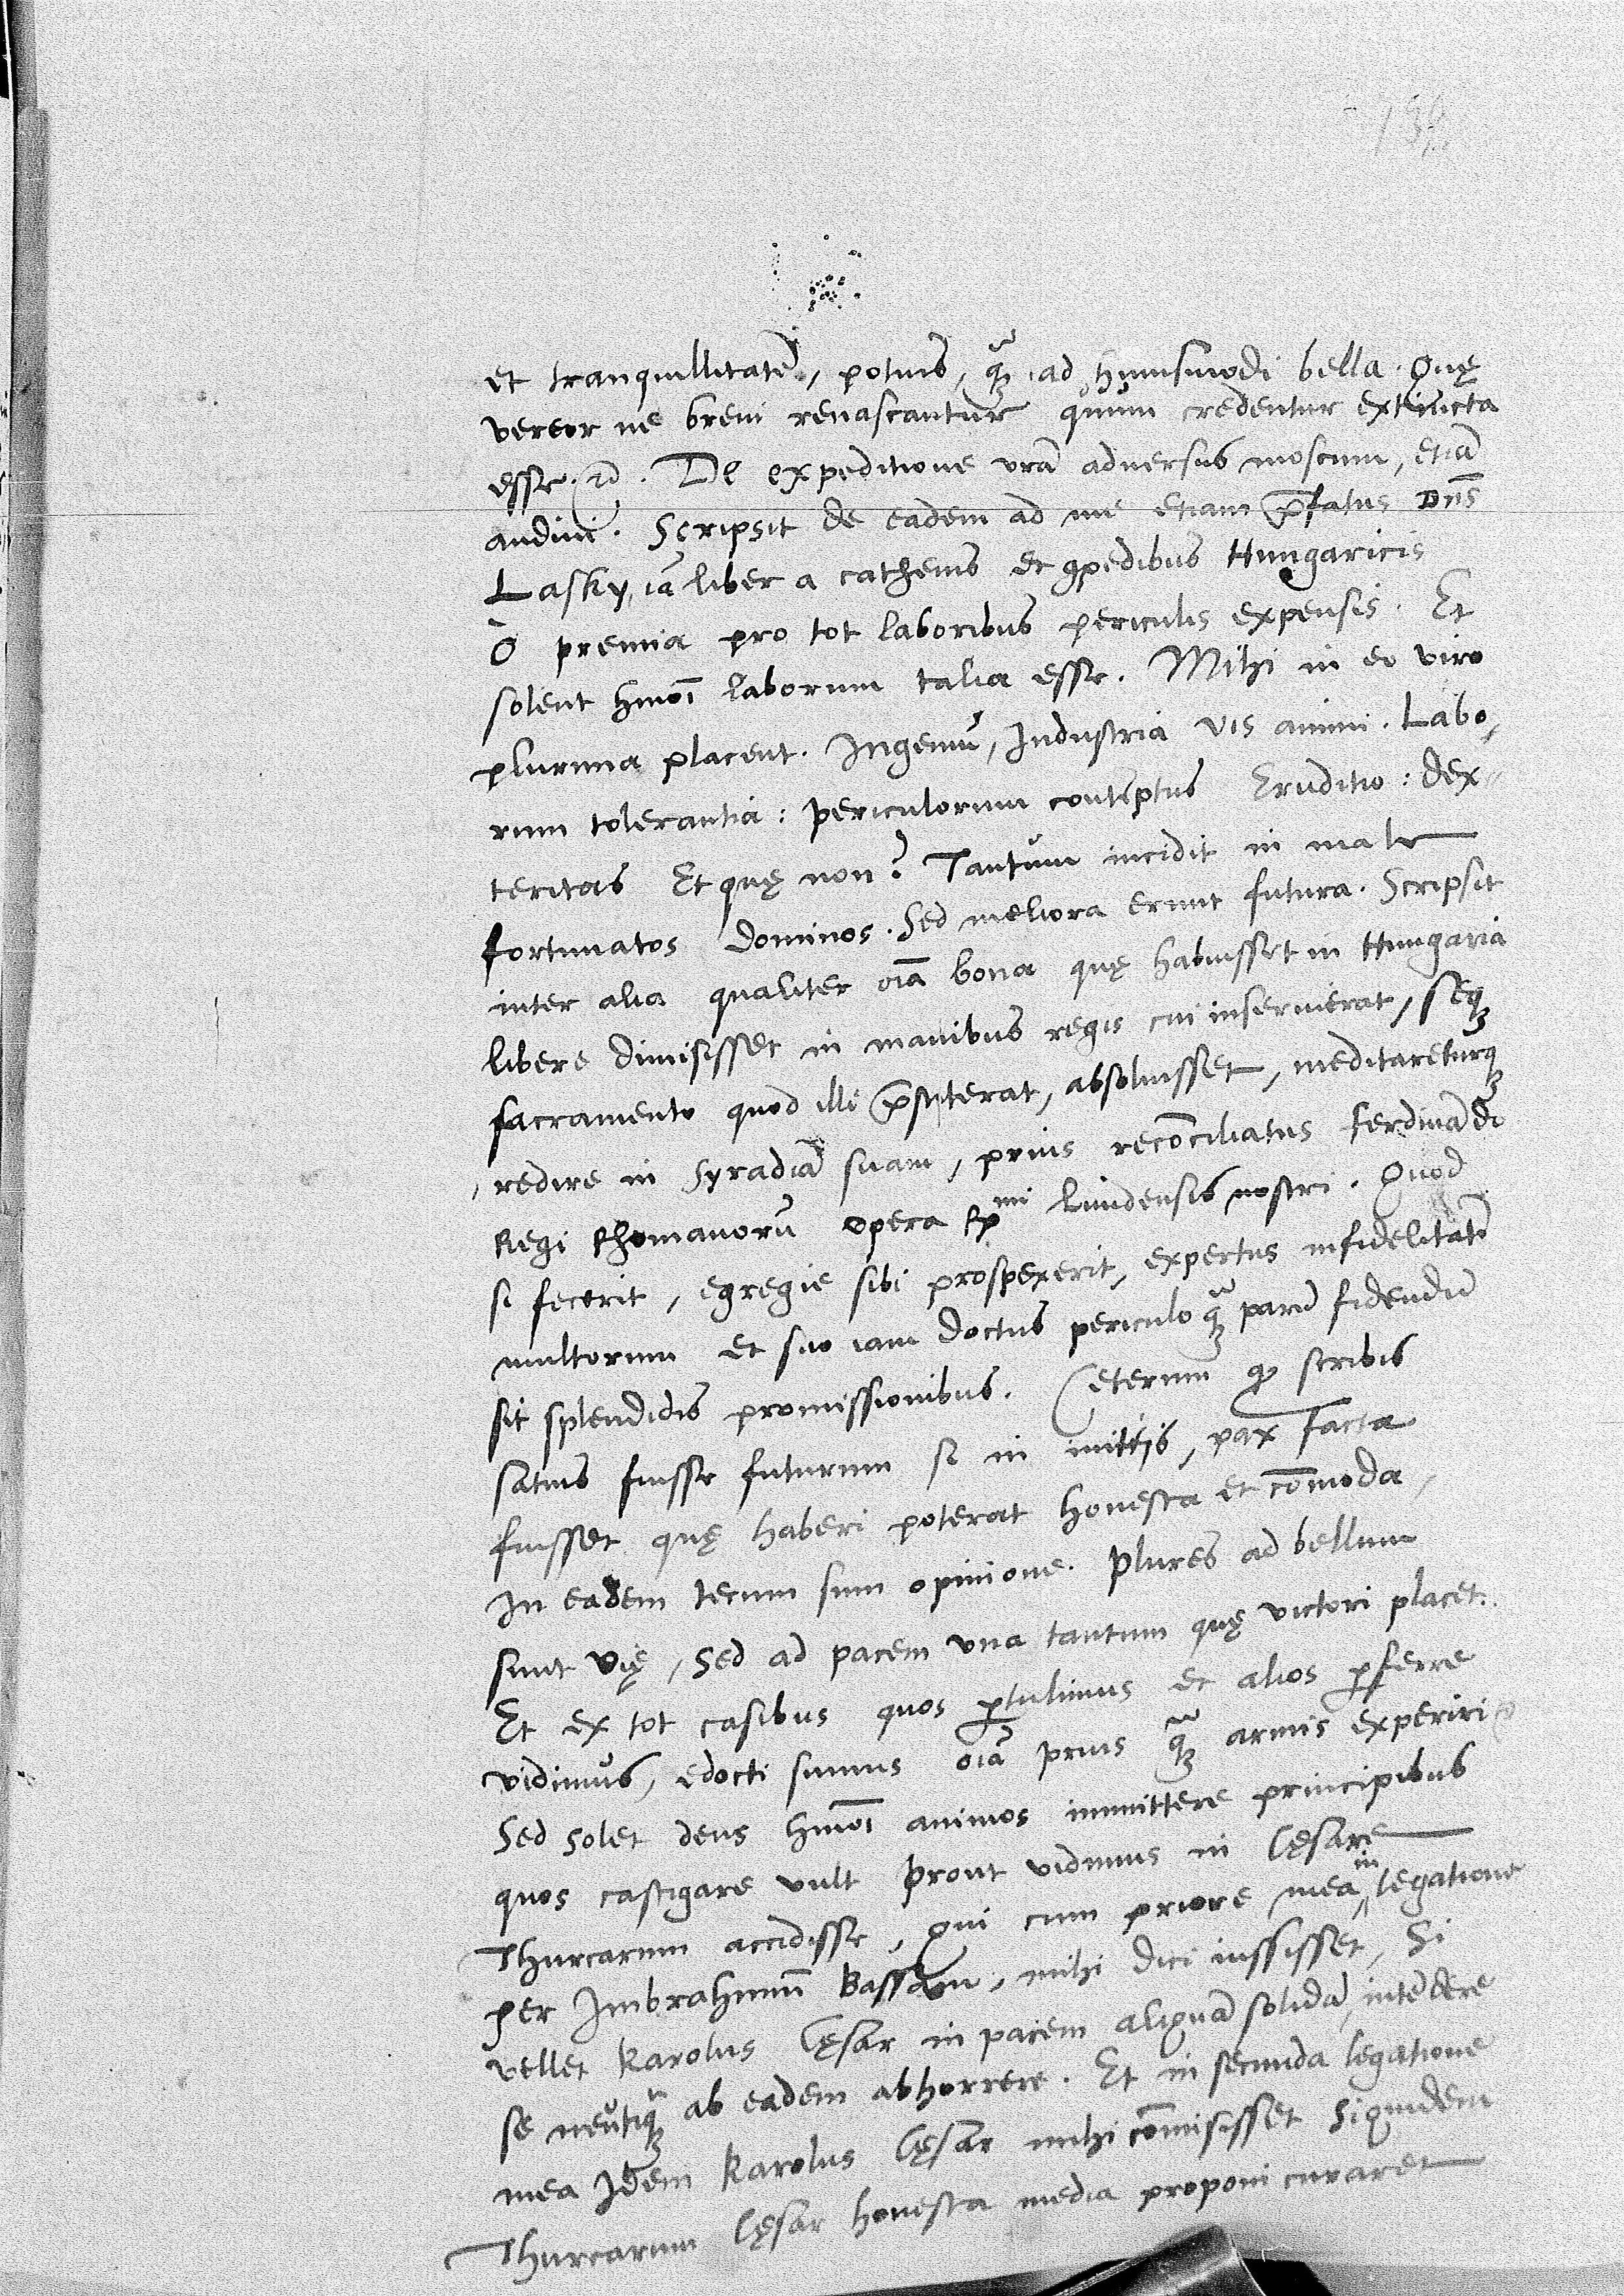 139
et tranquillitatē, potius, q̃ꝫ ad huiusmodi bella. Quę
vereor ne breui renascantur quum credentur extincta
esse. De expeditione vrā aduersus moscum, etiā
audiui. Scripsit de eadem ad me etiam p̄fatus Dn̄s
Lasky, iā liber a cathenis et ꝯpedibus Hungaricis
Ô premia pro tot laboribus periculis expensis. Et
solent hmōi laborum talia esse. Mihi in eo viro
plurima placent. Ingeniū, Industria vis animi. Labo,
rum tolerantia: periculorum contēptus Eruditio: dex-
teritas Et quę non? Tantum incidit in male
fortunatos dominos. Sed meliora erunt futura. Scripsit
inter alia qualiter oīa bona quę habuisset in Hungaria
libere dimisisset in manibus regis cui inseruierat, seqꝫ
sacramento quod illi p̄stiterat, absoluisset, meditareturqꝫ
redire in Syradiā suam, prius reconciliatus ferdinādo
Regi Rhomanorū opera Rmi Lundensis nostri. Quod
si fecerit, egregie sibi prospexerit, expertus infidelitatē
multorum et suo iam doctus periculo q̃ꝫ parū fidendū
sit splendidis promissionibus. Ceterum qꝫ scribis
satius fuisse futurum si in initijs, pax facta
fuisset quę haberi poterat honesta et cōmoda,
In eadem tecum sum opinione. Plures ad bellum
sunt vię, Sed ad pacem vna tantum quę victori placet.
Et ex tot casibus quos ꝑtulimus et alios ꝑferre
vidimus, edocti sumus oīa prius q̃ꝫ armis experiri
Sed solet deus hmōi animos immittere principibus
quos castigare vult Prout vidimus in Cęsare
Thurcarum accidisse, qui cum priore mea in legatione
per Imbrahimum Bassam, mihi dici iussisset, Si
vellet Karolus Cęsar in pacem aliquā solidā, intēdere
se neutiq̃ꝫ ab eadem abhorrere. Et in secunda legatione
mea Idem Karolus Cęsar mihi cōmisisset Siquidem
Thurcarum Cęsar honesta media proponi curaret